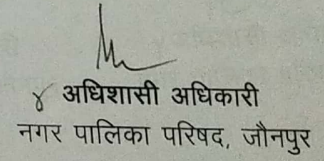 अधिशासी अधिकारी
नगर पालिका परिषद, जौनपुर